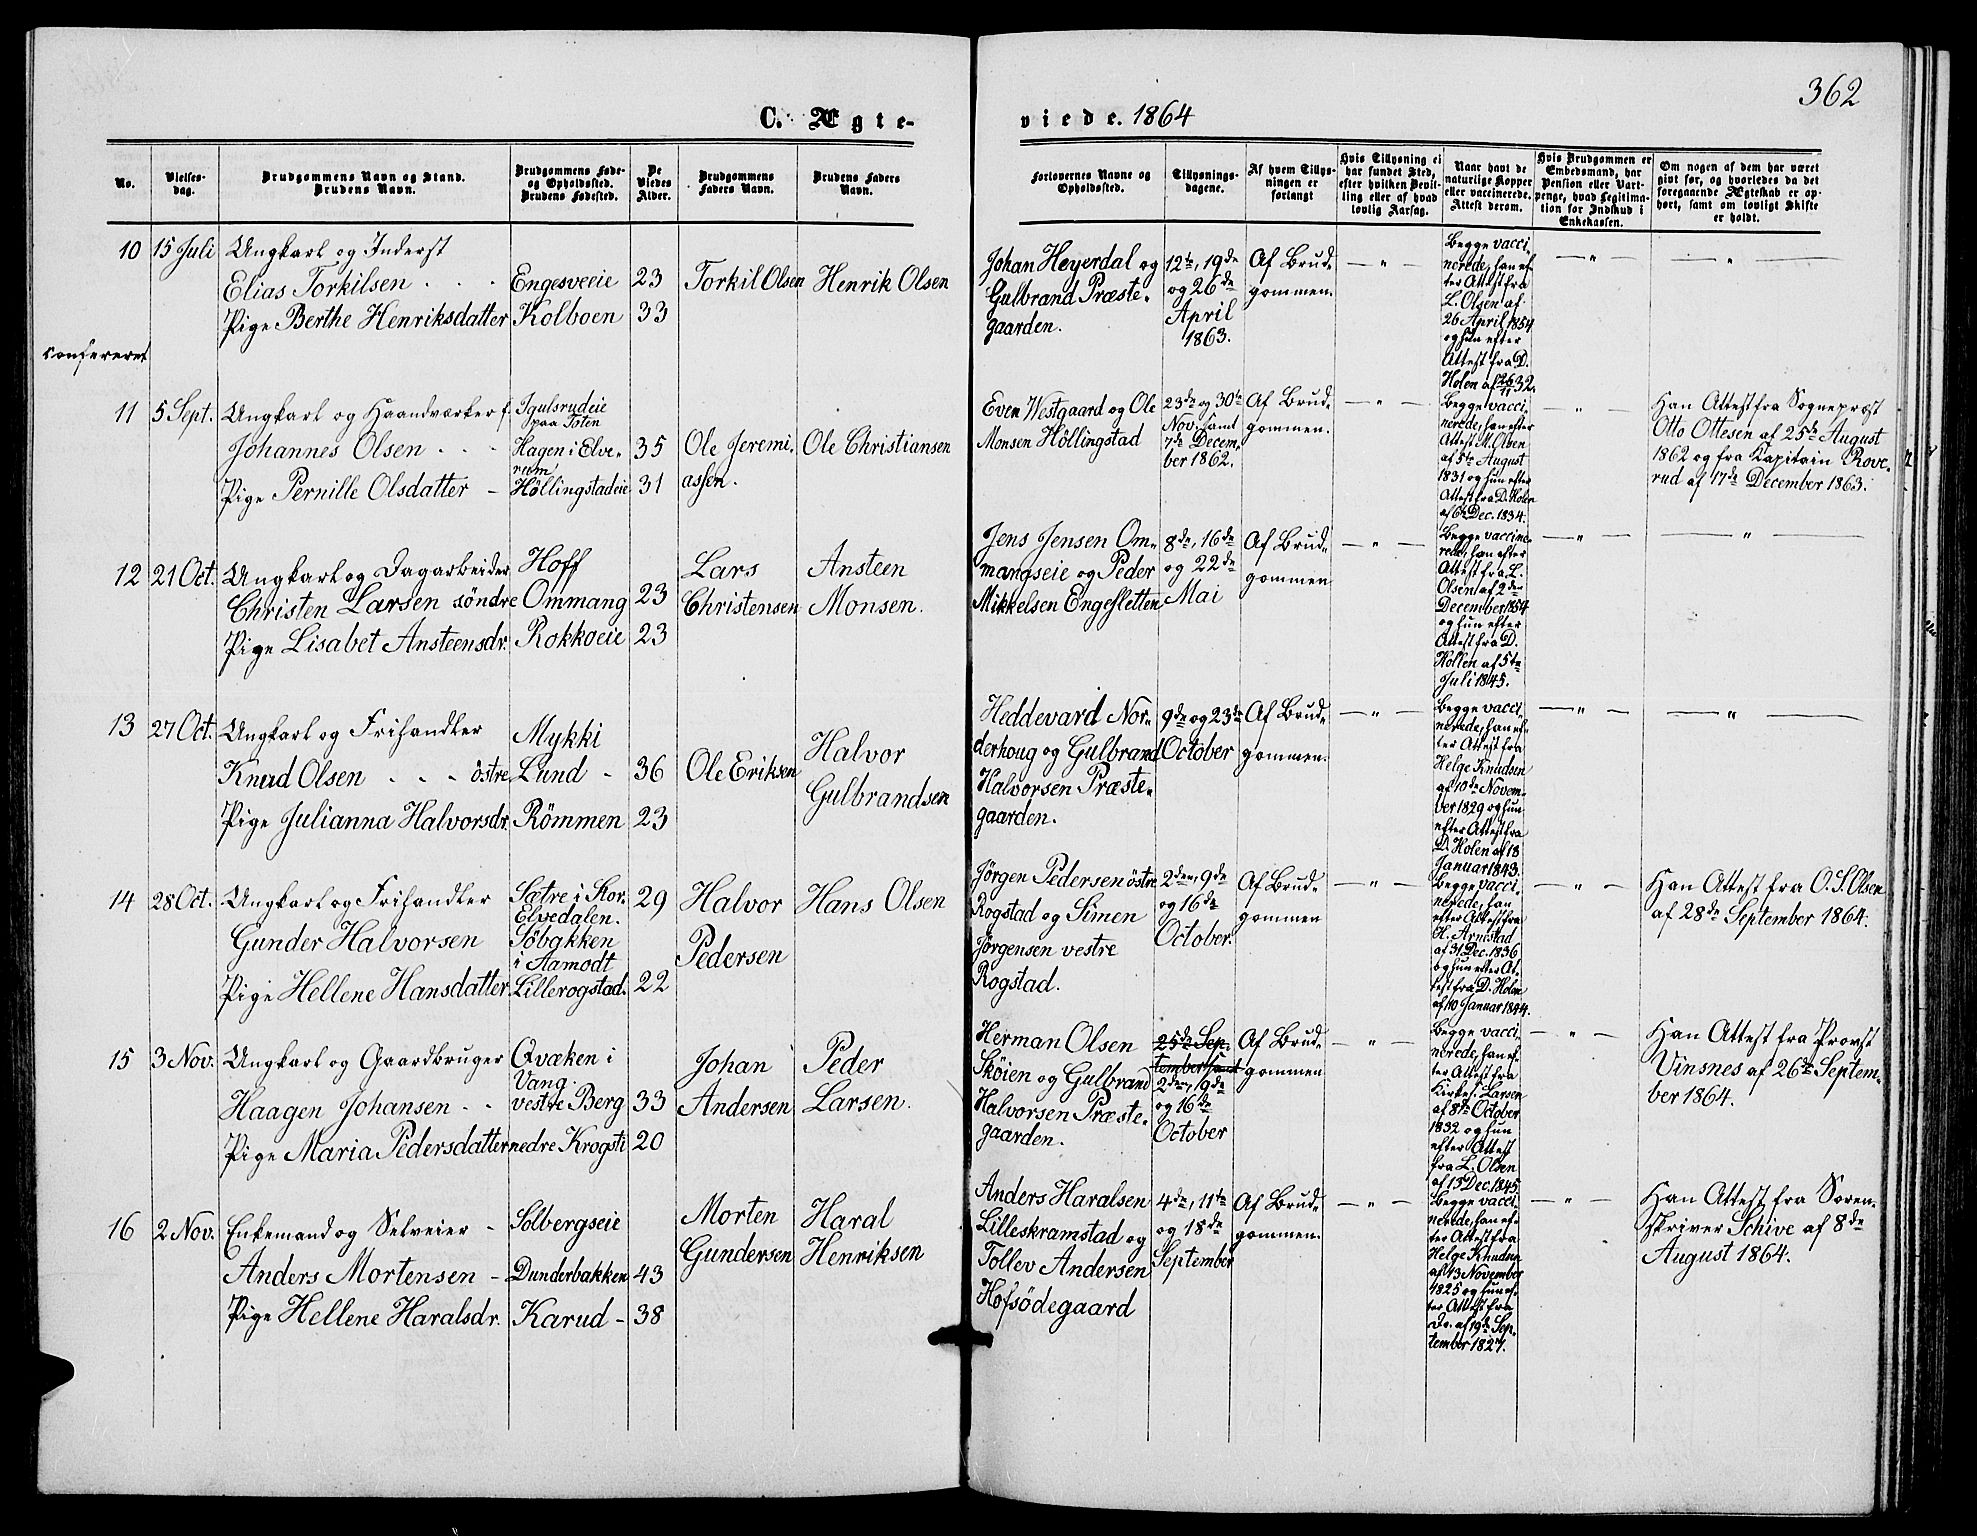 362
C. Ægte-
viede. 1864
No.
Vielses-
dag.
Brudgommens Navn og Stand.
Brudens Navn.
Brudgommens Føde-
og Opholdssted.
Brudens Fødested.
De
Viedes
Alder.
Brudgommens
Faders Navn.
Brudens Faders
Navn.
Forlovernes Navne og
Opholdssted.
Tillysnings-
dagene.
Af hvem Tillys-
ningen er
forlangt
Hvis Tillysning ei
har fundet Sted,
efter hvilken Bevil-
ling eller af hvad
lovlig Aarsag.
Naar havt de
naturlige Kopper
eller vaccinerede.
Attest derom.
Hvis Brudgommen er
Embedsmand, har
Pension eller Vart-
penge, hvad Legitima-
tion for Indskud i
Enkekassen.
Om nogen af dem har været
gift før, og hvorledes da det
foregaaende Ægteskab er op-
hørt, samt om lovligt Skifte
er holdt.
10
15 Juli
Ungkarl og Inderst
Elias Torkilsen . . .
Pige Berthe Henriksdatter
Engesveeie
Kolboen
23
33
Torkil Olsen
Henrik Olsen
Johan Heyerdal og
Gulbrand Præste-
gaarden.
12te, 19de
og 26de
April
1863.
Af Brud-
gommen.
— " —
Begge vacci-
nerede, han ef-
ter Attest fra
L. Olsen af
26 April 1854
og hun efter
Attest fra D.
Holen af 26/11 32.
— " —
— " —
confereret
11
5 Sept.
Ungkarl og Haandværker f.
Johannes Olsen . . .
Pige Pernille Olsdatter —
Igulsrudeie
paa Toten
Hagen i Elve-
rum
Höllingstadeie
35
31
Ole Jeremi-
assen.
Ole Christiansen
Even Westgaard og Ole
Monsen Höllingstad
23de og 30te
Nov. samt
7de Decem-
ber 1862.
Af Brud-
gommen.
— " —
Begge vacci-
nerede, han efter
Attest M. Olsen
af 5te August
1831 og hun efter
Attest fra D. Holen
af 6te Dec. 1834.
— " —
Han Attest fra Sogneprest
Otto Ottesen af 25de August
1862 og fra Kapitain Rove-
rud af 17de December 1863.
12
21 Oct.
Ungkarl og Dagarbeider
Christen Larsen söndre
Pige Lisabet Ansteensdr.
Hoff
Ommang
Rokkoeie
23
23
Lars
Christensen
Ansteen
Monsen.
Jens Jensen Om-
mangseie og Peder
Mikkelsen Engesletten
8de, 16de
og 22de
Mai
Af Brud-
gommen
— " —
Begge vaccine-
rede, han efter
Attest fra L.
Olsen af 2de
December 1854
og hun efter
Attest fra D.
Hollen af 5te
Juli 1845.
— " —
— " —
13
27 Oct.
Ungkarl og Frihandler
Knud Olsen - - - östre
Pige Julianna Halvorsdr.
Mykki
Lund -
Römmen
36
23
Ole Eriksen
Halvor
Gulbrandsen
Heddevard Nor-
derhoug og Gulbrand
Halvorsen Præste-
gaarden.
9de og 23de
October
Af Brud-
gommen.
— " —
Begge vacci-
nerede, han ef-
ter Attest fra
Helge Knudsen
af 10de Novem-
ber 1829 og hun
efter Attest fra
D. Holen af 18
Januar 1843.
— " —
— " —
14
28 Oct.
Ungkarl og Frihandler
Gunder Halvorsen
Pige Hellene Hansdatter
Sætre i Stor-
Elvedalen.
Söbakken
i Aamodt
Lillerogstad.
29
22
Halvor
Pedersen
Hans Olsen
Jørgen Pedersen östre
Rogstad og Simen
Jørgensen vestre
Rogstad.
2den, 9de
og 16de
October.
Af Brud-
gommen
— " —
Begge vacci-
nerede, han
efter Attest fra
H. Arnestad
af 31 Dec. 1836
og hun efter At-
test fra D. Holen
af 10 Januar 1844.
— " —
Han Attest fra O. S. Olsen
af 28de September 1864.
15
3 Nov.
Ungkarl og Gaardbruger
Haagen Johansen - -
Pige Maria Pedersdatter
Qvæken i
Vang.
vestre Berg
nedre Krogsti
33
20
Johan
Andersen
Peder
Larsen.
Herman Olsen
Skøien og Gulbrand
Halvorsen Præste-
gaarden.
25de Sep-
tember samt
2den, 9de
og 16de
October
Af Brud-
gommen
— " —
Begge vacci-
nerede, han ef-
ter Attest fra
Kirkes. Larsen
af 8de October
1832 og hun
efter Attest
fra L. Olsen
af 13 Dec. 1845.
— " —
Han Attest fra Provst
Vinsnes af 26de Septem-
ber 1864.
16
2 Nov.
Enkemand og Selveier -
Anders Mortensen -
Pige Hellene Haralsdr.
Solbergseie
Dunderbakken
Karud -
43
38
Morten
Gundersen
Haral
Henriksen
Anders Haralsen
Lilleskramstad og
Tollev Andersen
Hofsödegaard
4de, 11te
og 18de
September
Af Brud-
gommen.
— " —
Begge vacci-
nerede, han ef-
ter Attest fra
Helge Knudsen
af 13 November
1825 og hun ef-
ter Attest fra
Do. af 19de Sep-
tember 1827.
— " —
Han Attest fra Soren-
skriver Schive af 8de
August 1864.